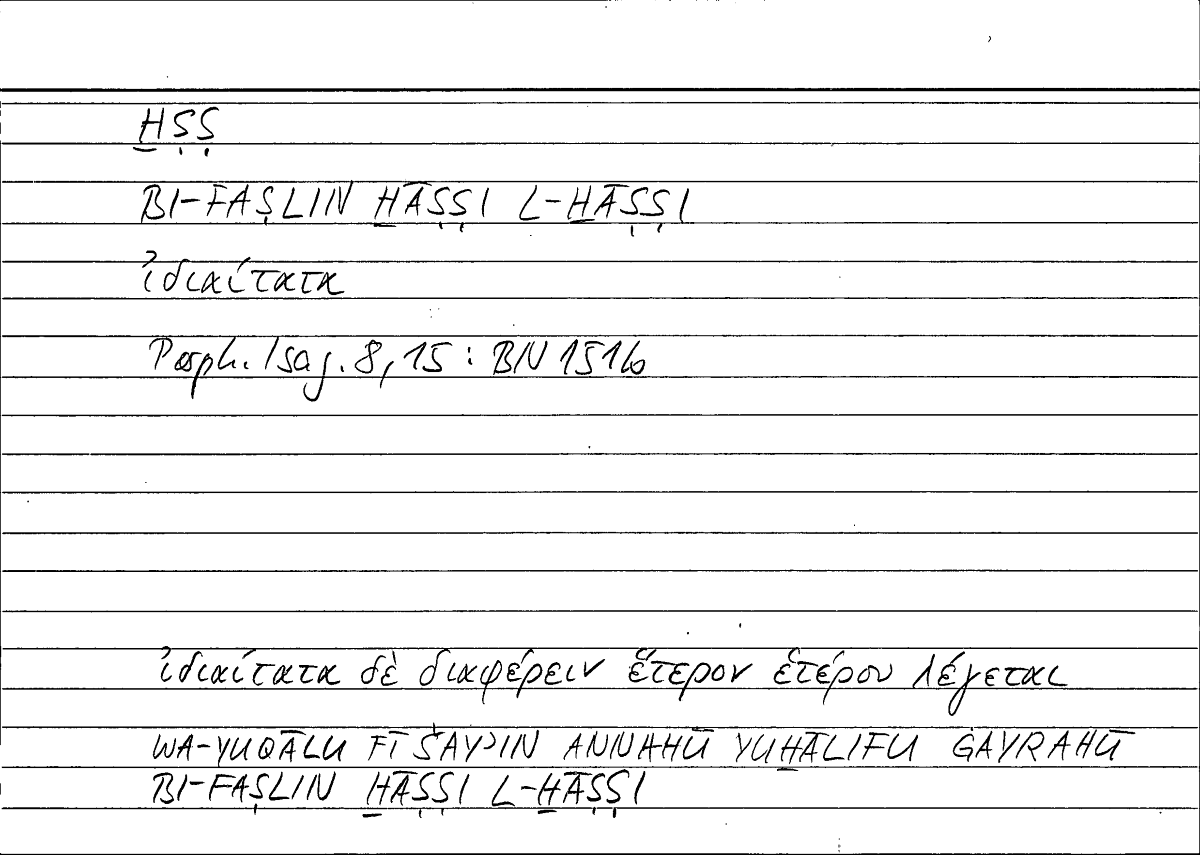 ḪṢṢ
BI-FAṢLIN ḪĀṢṢI L-ḪĀṢṢI
ἰδιαίτατα
Porph. Isag. 8, 15 : BN 151b
ἰδιαίτατα δὲ διαφέρειν ἕτερον ἑτέρου λέγεται
WA-YUQĀLU FĪ ŠAYʾIN ANNAHŪ YUḪĀLIFU ĠAYRAHŪ
BI-FAṢLIN ḪĀṢṢI L-ḪĀṢṢI